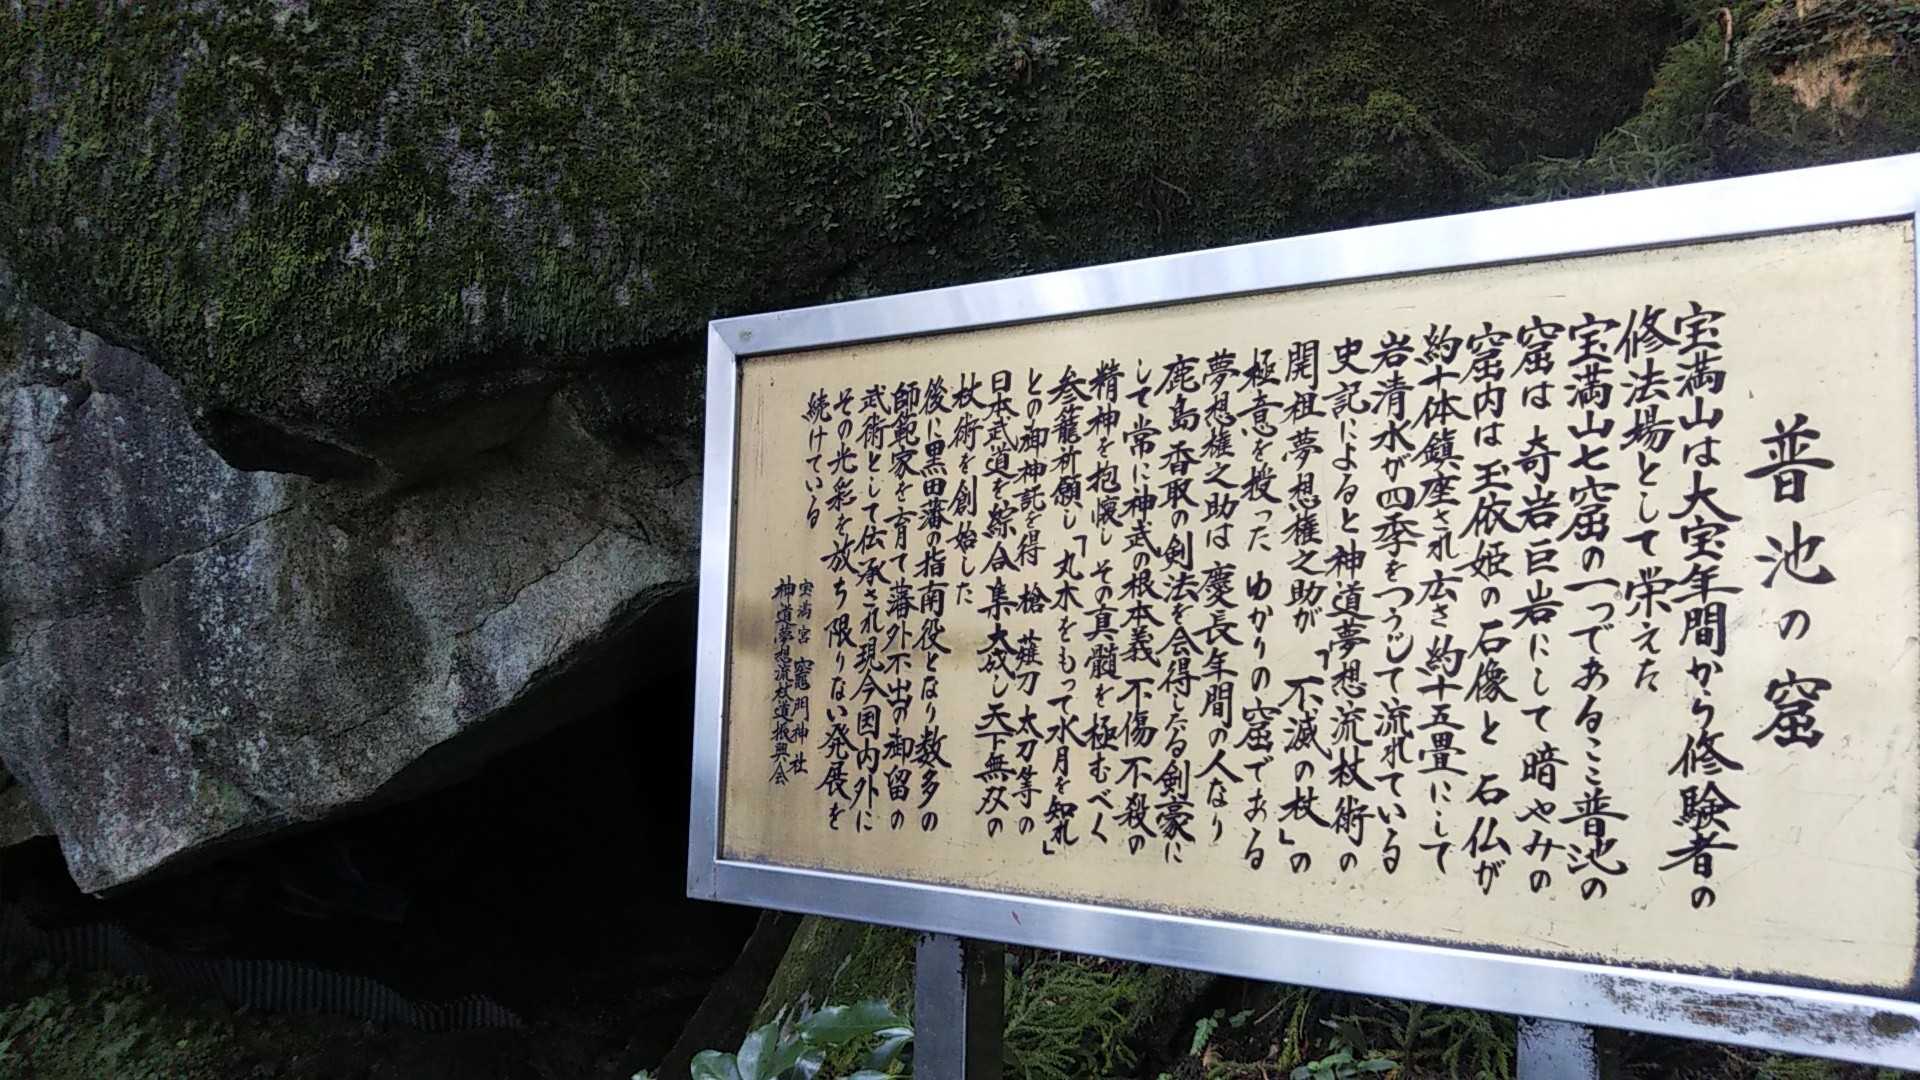 普池の窟
宝満山は大宝年間から修験者の
修法場として栄えた
宝満山七窟の一つであるここ普池の
窟は 奇岩巨岩にして暗やみの
窟内は玉依姫の石像と 石仏が
約十体鎮座され広さ約十五畳にして
岩清水が四季をつうじて流れている
史記によると神道夢想流杖術の
開祖夢想権之助が「不滅の杖」の
極意を授った ゆかりの窟である
夢想権之助は慶長年間の人なり
鹿島香取の剣法を会得したる剣豪に
して常に神武の根本義 不傷不殺の
精神を抱懐し その真髄を極むべく
参籠祈願し「丸木をもって水月を知れ」
との御神託を得 槍 薙刀 太刀等の
日本武道を綜合集大成し天下無双の
杖術を創始した
後に黒田藩の指南役となり数多の
師範家を育て藩外不出の御留の
武術として伝承され現今国内外に
その光彩を放ち限りない発展を
続けている
宝満宮 竈門神社
神道夢想流杖道振興会